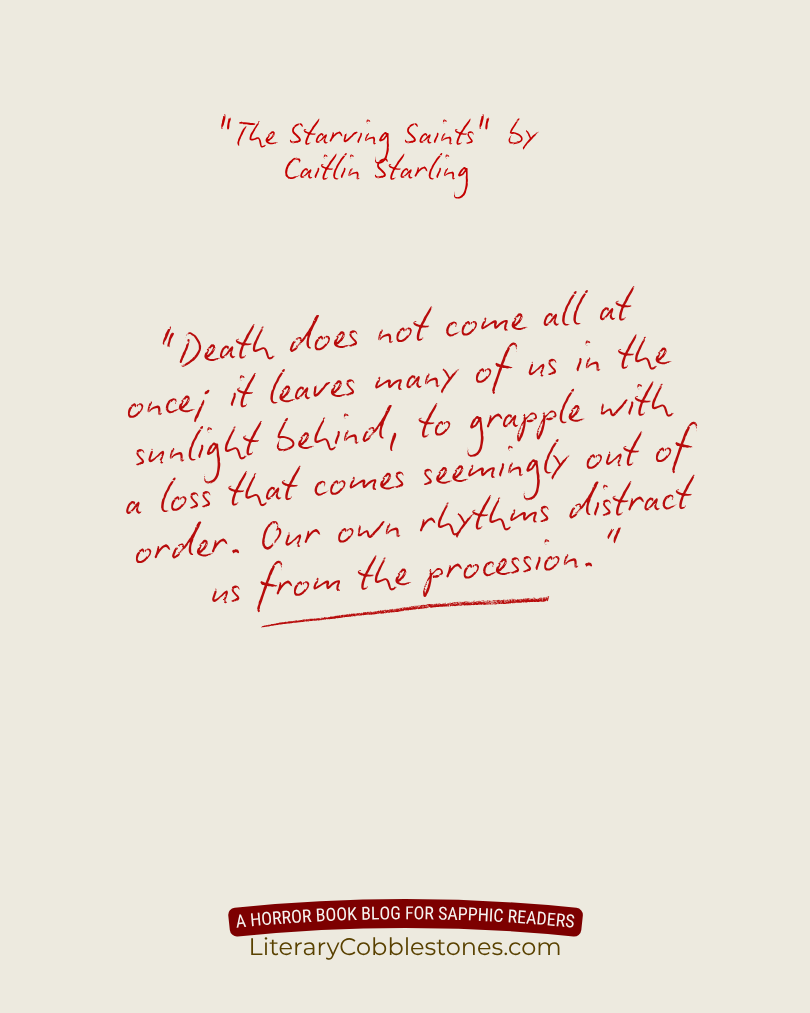 "The Starving Saints" by
Caitlin Starling
"Death does not come all at
once; it leaves many of us in the
sunlight behind, to grapple with
a loss that comes seemingly out of
order. Our own rhythms distract
us from the procession."
A HORROR BOOK BLOG FOR SAPPHIC READERS
LiteraryCobblestones.com